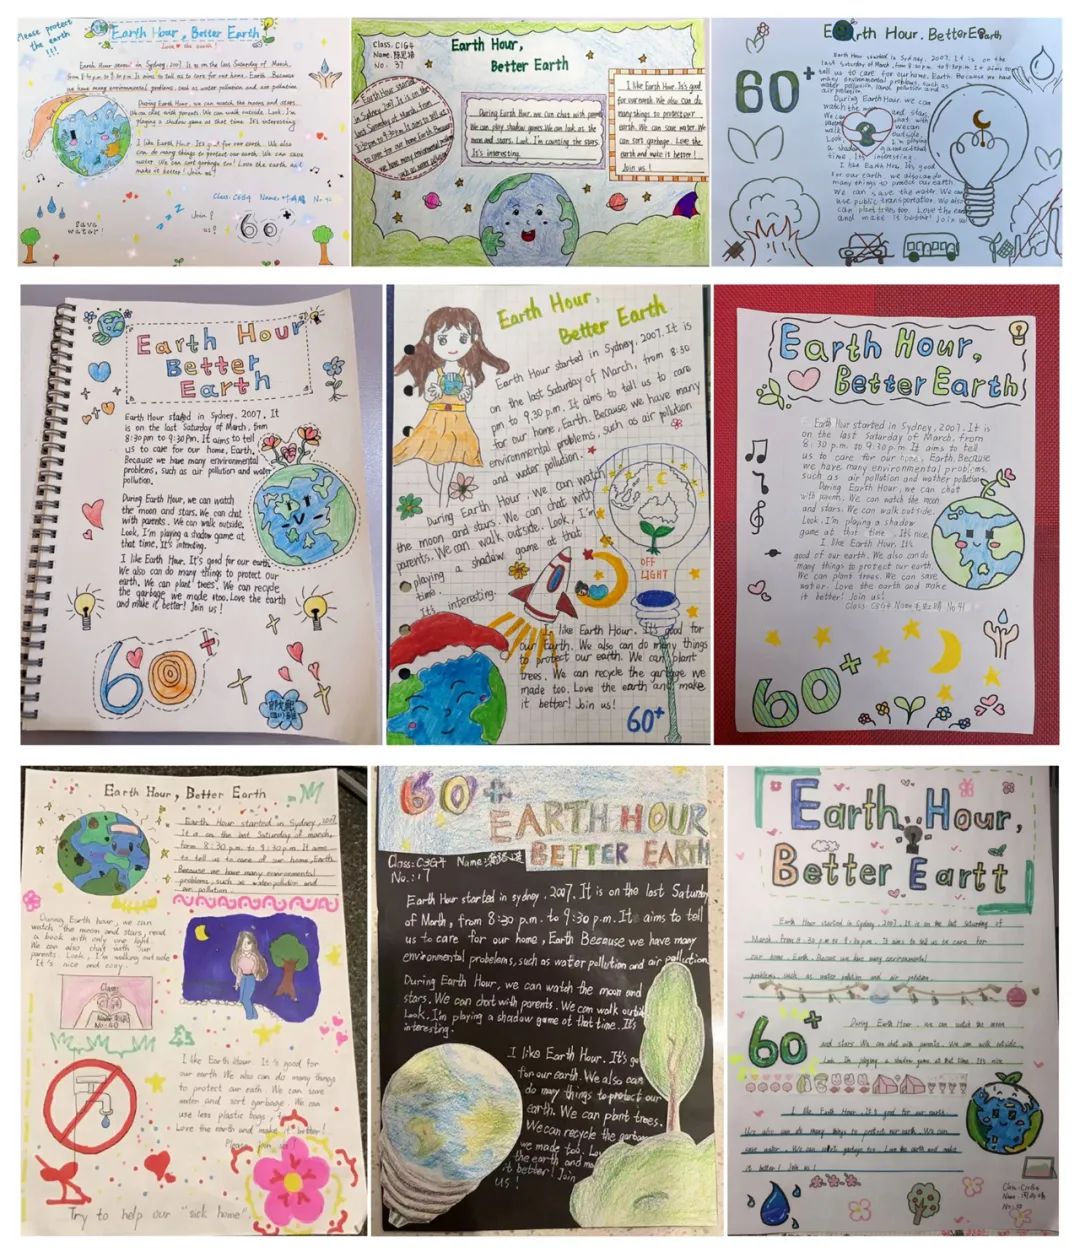 Please protect
the earth
!!!
Earth Hour, Better Earth
Love the earth!
Earth Hour in Sydney, 2007. It is on the last Saturday of March,
from 8:30 p.m. to 9:30 p.m. It aims to tell us to care for our home, Earth. Because
we have many environmental problems, such as water pollution and air pollution
During Earth Hour, we can watch the moon and stars.
We can chat with parents. We can walk outside. Look, I'm
playing a shadow game at that time. It's interesting
I like Earth Hour. It's good for our earth. We also
can do many things to protect our earth. We can save
water. We can sort garbage too! Love the earth and
make it better! Join us!
Class: C6G4 Name: No: 42
Save
water!
Join
us!
60+
Class: C1G4
Name:
No: 37
Earth Hour,
Better Earth
Earth Hour started
in Sydney, 2007. It is on the
last Saturday of March, from
8:30 p.m. to 9:30 p.m. It aims to tell us
to care for our home Earth. Because
we have many environmental
problems such as
water pollution
During Earth Hour, we can chat with parents.
We can play shadow games. We can look at the
moon and stars. Look, I'm counting the stars.
It's interesting.
I like Earth Hour. It's good
for our earth. We also can do
many things to protect our
earth. We can save water. We
can sort garbage. Love the
earth and make it better!
Join us!
Earth Hour, Better Earth
60+
Earth Hour started in Sydney, 2007. It is on the
last Saturday of March, from 8:30 p.m. to 9:30 p.m. It aims to
tell us to care for our home, Earth. Because we have
many environmental problems, such as
water pollution, land pollution and
air pollution.
During Earth Hour, we can
watch the moon and stars.
We can
outside.
I'm playing
a shadow game at that
time. It's interesting.
I like Earth Hour. It's good
for our earth. we also can do
many things to protect our earth.
We can save the water. We can
use public transportation. We also
can plant trees too. Love the earth
and make it better! Join us
Earth Hour
Better
Earth
Earth Hour started in Sydney, 2007, It
is on the last Saturday of March, from
8:30pm to 9:30pm. It aims to tell
us to care for our home, Earth,
Because we have many environmental
problems, such as air pollution and water
pollution.
During Earth Hour, we can watch
the moon and stars. We can chat
with parents. We can walk outside.
Look, I'm playing a shadow game at
that time. It's interesting.
I like Earth Hour. It's good for our earth.
We also can do many things to protect our
earth. We can plant trees. We can recycle
the garbage we made too. Love the earth
and make it better! Join us!
60+
Earth Hour,
Better Earth
Earth Hour started in Sydney, 2007. It is
on the last Saturday of March, from 8:30
pm to 9:30 pm. It aims to tell us to care
for our home, Earth. Because we have many
environmental problems, such as air pollution
and water pollution.
During Earth Hour, we can watch
the moon and stars. We can chat with
parents. We can walk outside. Look, I'm
playing a shadow game at that
time.
It's interesting.
OFF
LIGHT
I like Earth Hour. It's good for
our earth. We also can do many things
to protect our earth. We can plant
trees. We can recycle the garbage we
made too. Love the earth and make
it better! Join us!
60+
Earth Hour,
Better Earth
Earth Hour started in Sydney, 2007. It is
on the last Saturday of March, from
8:30 p.m. to 9:30 p.m. It aims to tell
us to care for our home, Earth. Because
we have many environmental problems,
such as air pollution and wather pollution.
During Earth Hour, we can chat
with parents. We can watch the moon
and stars. We can walk outside.
Look, I'm playing a shadow
game at that time. It's nice.
I like Earth Hour. It's
good of our earth. We also can do
many things to protect our earth.
We can plant trees. We can save
water. Love the earth and make
it better! Join us!
Class: C3G4 Name: No:41
60+
Earth Hour, Better Earth
Earth Hour started in Sydney, 2007
It is on the last Saturday of march,
form 8:30 p.m. to 9:30 p.m. It aims
to tell us to care of our home, Earth.
Because we have many environmental
problems, such as water pollution and
air pollution.
During Earth hour, we can
watch the moon and stars, read
a book with only one light.
We can also chat with our
parents. Look, I'm walking outside
It's nice and cozy.
Class:
Name:
No: 40
I like Earth Hour. It is good for
our earth. We also can do many things
to protect our eath. We can save
water and sort garbage. We can
use less plastic bags,
Love the earth and make it better!
Please join us!
Try to help our "sick home".
60+
EARTH HOUR
BETTER EARTH
Class: C3G4 Name:
No.: 17
Earth Hour started in sydney, 2007. It is on the last Saturday
of Marth, from 8:30 p.m. to 9:30 p.m. It aims to tell
us to care for our home, Earth Because we have many
environmental probelems, such as water pollution and air pollution.
During Earth Hour, we can watch the moon and
stars. We can chat with parents. We can walk outside
Look, I'm playing a shadow game at that time. It's
interesting.
I like Earth Hour. It's good
for our earth. We also can
do many things to protect our
earth. We can plant trees.
We can recycle the garbage
we made too. Love
the earth and make
it better! Join
us!
Earth Hour,
Better Eartt
Earth Hour started in Sydney, 2007. It is on the last Saturday of
March, from 8:30 p.m. to 9:30 p.m. It aims to tell us to care for
our home, Earth. Because we have many environmental
problems such as water pollution and air pollution.
60+
During Earth Hour, we can watch the moon
and stars. We can chat with parents. We can walk outside.
Look, I'm playing a shadow game at that time. It's nice.
I like Earth Hour. It is good for our earth.
We also can do many things to protect our earth. We can
save water. We can sorts garbage too. Love the earth and make
it better! Join us!
Class:
Name:
No: